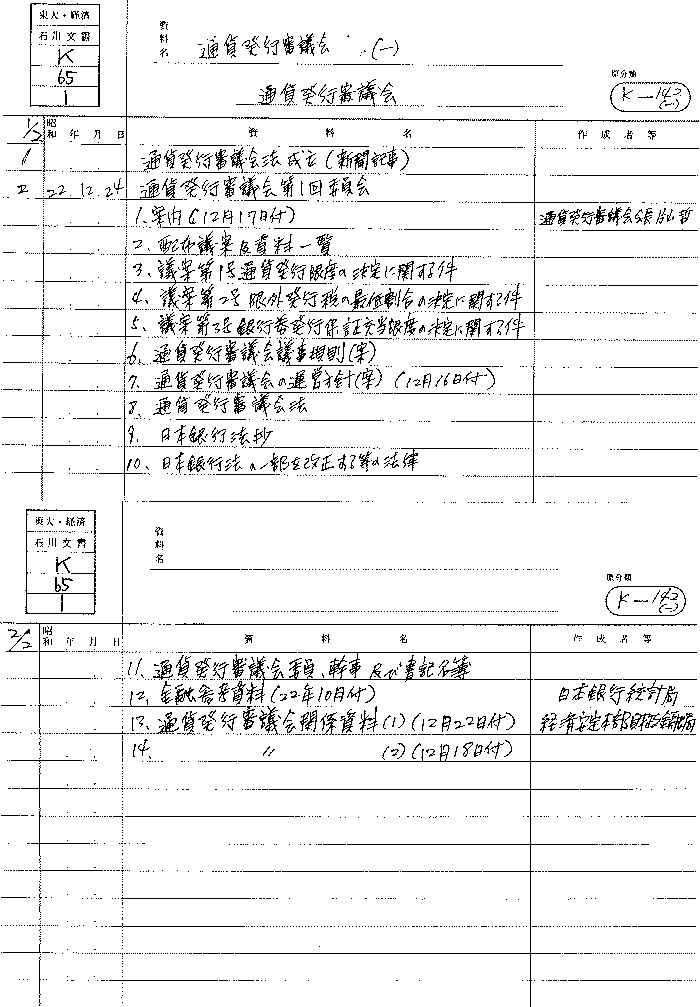 東大・経済
石川文書
K
65
1
資料名 通貨発行審議会 (一)
通貨発行審議会
原分類
K-143
(一)
1/2 昭和 年 月 日 資 料 名 作成者等
1 通貨発行審議会法成立(新聞記事)
2 22.12.24 通貨発行審議会第1回委員会
1. 案内(12月17日付) 通貨発行審議会会長
2. 配布議案及資料一覧
3. 議案第1号通貨発行限度の決定に関する件
4. 議案第2号限外発行税の最低割合の決定に関する件
5. 議案第3号銀行券発行保証充当限度の決定に関する件
6. 通貨発行審議会議事規則(案)
7. 通貨発行審議会の運営方針(案) (12月16日付)
8. 通貨発行審議会法
9. 日本銀行法抄
10. 日本銀行法の一部を改正する等の法律
東大・経済
石川文書
K
65
1
資料名
原分類
K-143
(一)
2/2 昭和 年 月 日 資 料 名 作成者等
11. 通貨発行審議会委員、幹事及び書記名簿
12. 金融参考資料(22年10月付) 日本銀行統計局
13. 通貨発行審議会関係資料(1)(12月22日付) 経済安定本部財政金融局
14. 〃 (2)(12月18日付)